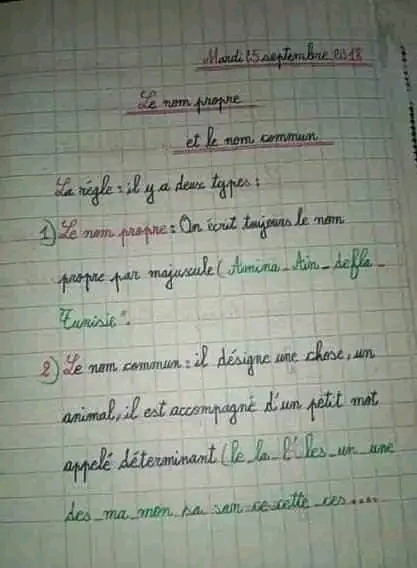 Mardi 25 septembre 2018
Le nom propre
et le nom commun
La régle : il y a deux types :
1) Le nom propre : On écrit toujours le nom
propre par majuscule ( Amina _ Ain _ defla _
Tunisie ".
2) Le nom commun : il désigne une chose, un
animal, il est accompagné d'un petit mot
appelé déterminant ( le _ la _ l' _ les _ un _ une
des _ ma _ mon _ sa _ son _ ce _ cette _ ces ....